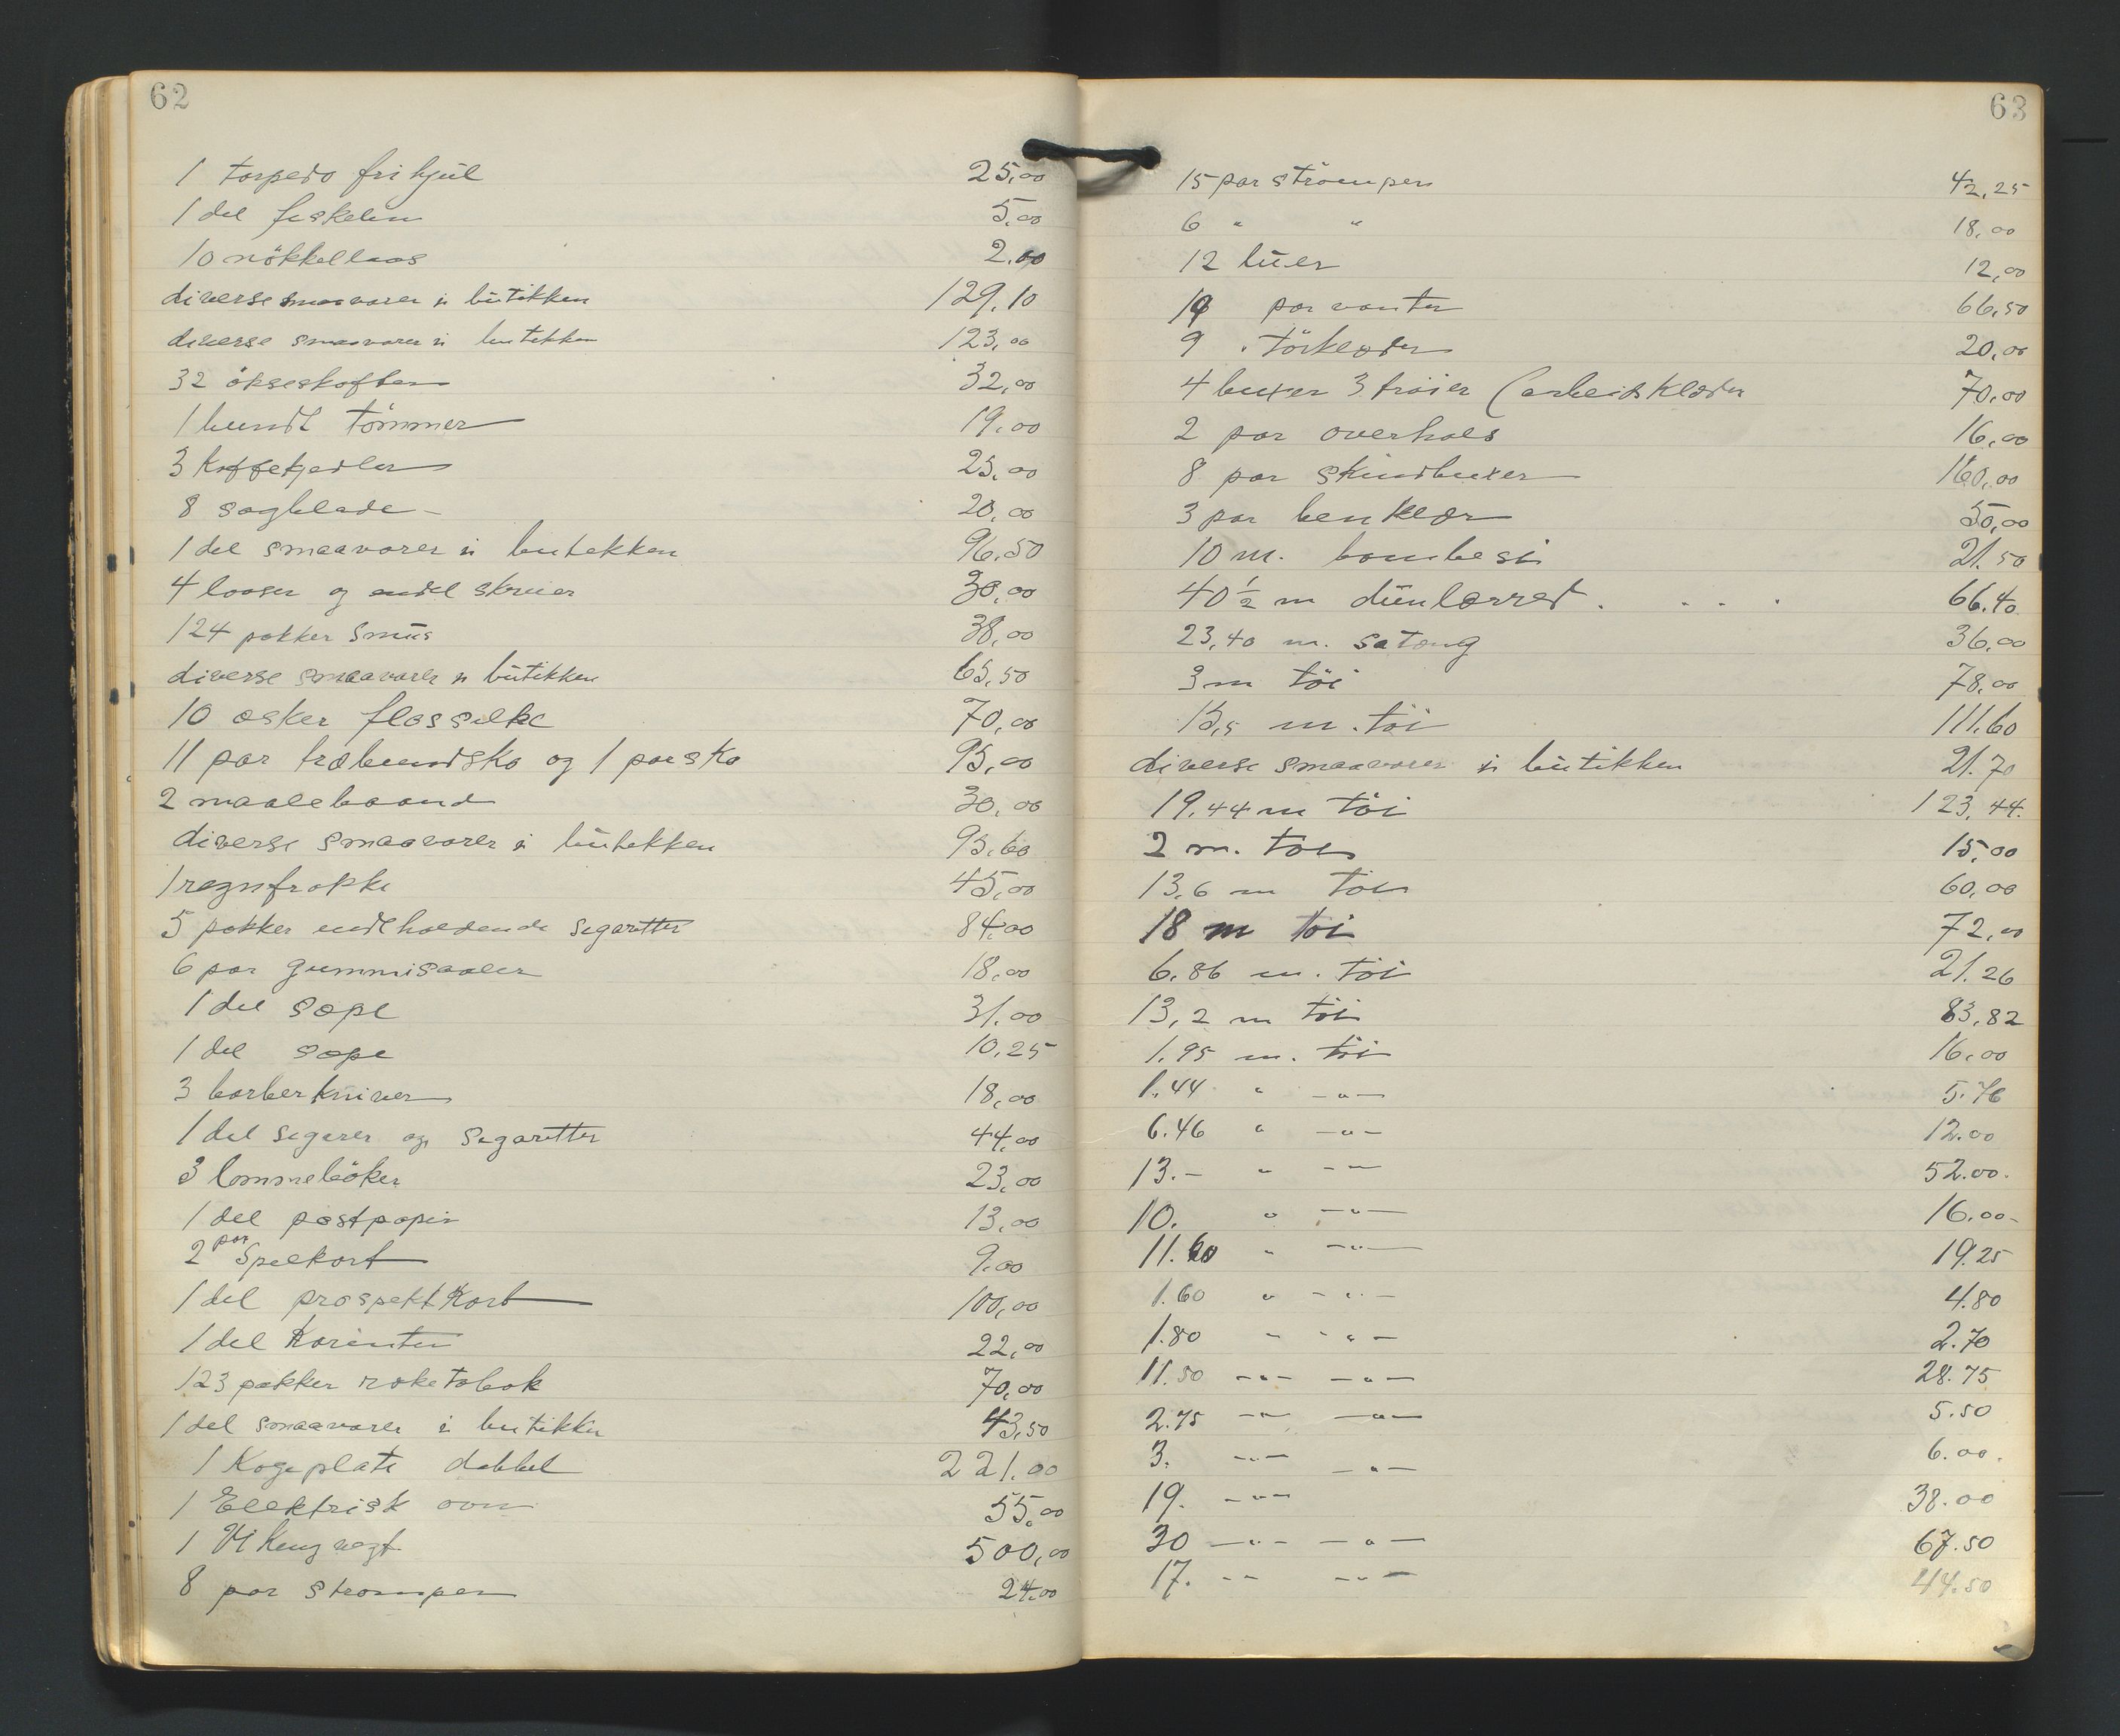 62
1 torpedo frihjül 25,00
1 del feskelin 5,00
10 nökkellaas 2.00
diverse smaavarer i bütikken 129,10
diverse smaavarer i butikken 123,00
32 økseskaften 32,00
1 bundt tömmer 19,00
3 Kaffekjedler 25,00
8 sagblade - 20,00
1 del smaavarer i butekken 96,50
4 laaser og endel skruer 30,00
124 pakker snüs 38,00
diverse smaavarer i bütikken 65,50
10 æsker flossilke 70,00
11 par træbundsko og 1 par sko 95,00
2 maalebaand 30,00
diverse smaavarer i bütekken 95,60
1 regnfrakke 45,00
5 pakker endtholdende segaretter 84,00
6 par gummisaaler 18,00
1 del sæpe 31,00
1 del sæpe 10,25
3 barberkniver 18,00
1 del segarer og segaretter 44,00
3 lommebøker 23,00
1 del postpapir 13,00
2 par Spelkort 9,00
1 del prospektkort 100,00
1 del Korinter 22,00
123 pakker røketobak 70,00
1 del smaavarer i butikken 43,50
1 Kogeplate dobbel 221.00
1 Elektrisk ovn 55,00
1 Vikingvegt 500,00
8 par strømper 24,00
63
15 par strömper 42,25
6 " " 18,00
12 lüer 12,00
19 par vanter 66,50
9 törklæder 20,00
4 buxer 3 trøier (arbeidsklæder 70,00
2 par overhals 16,00
8 par skindbuxer 160,00
3 par benklær 50,00
10 m. bombesi 21.50
40 1/2 m dünlærred . . . . 66.40
23,40 m. sateng 36,00
3 m töi 78,00
15,5 m. töi 111.60
diverse smaavarer i bütikken 21.70
19,44 m töi 123,44.
2 m. töi 15,00
13,6 m töi 60,00
18 m töi 72,00
6,86 m. töi 21.26
13,2 m töi 83,82
1.95 m. töi 16,00
1.44 " -"- 5.76
6.46 " -"- 12.00
13.- " -"- 52.00.
10. " -"- 16.00-
11.60 " -"- 19.25
1.60 " -"- 4.80
1.80 " -"- 2.70
11.50 -"- -"- 28.75
2.75 -"- -"- 5.50
3. -"- -"- 6.00.
19. -"- 38.00
30 -"- -"- 67.50
17. -"- -"- 44.50